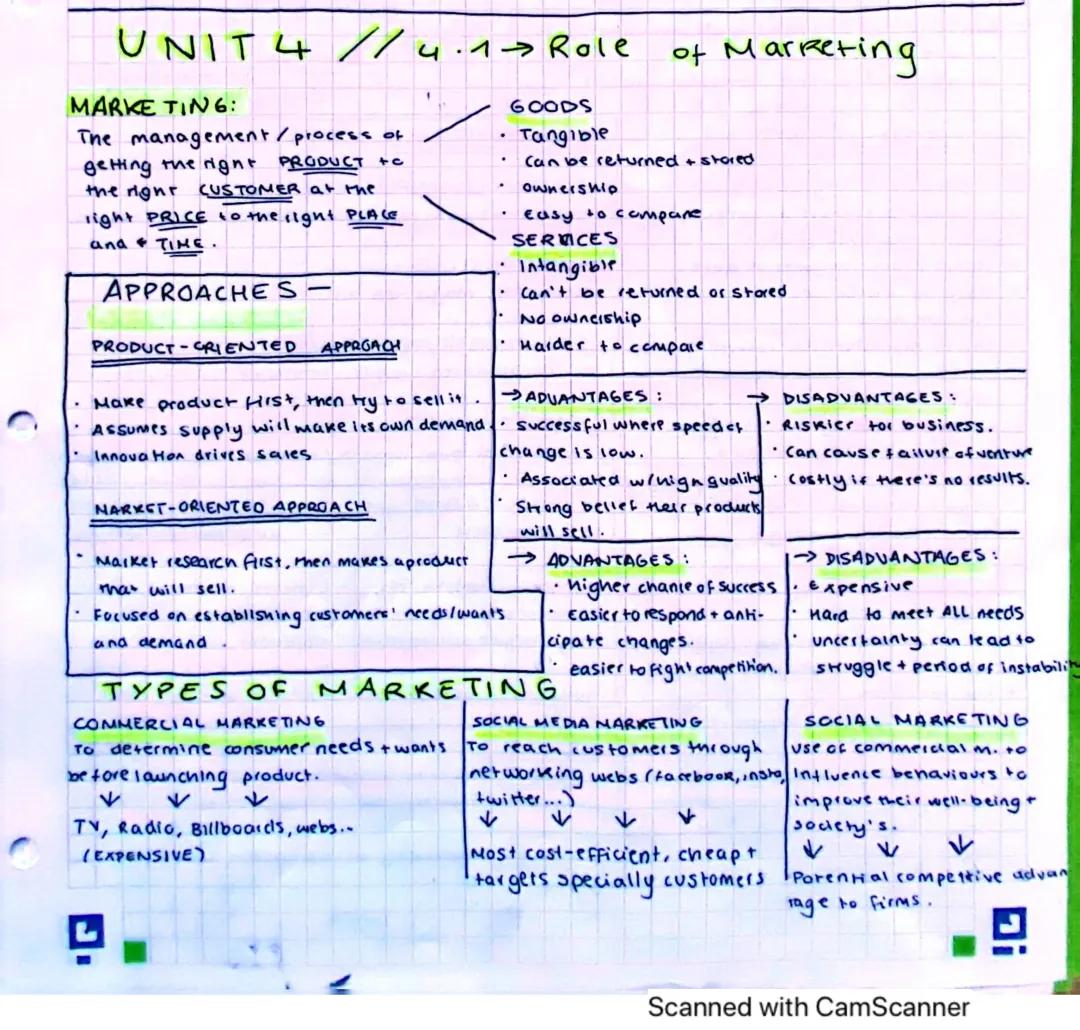 UNIT 4 // 4.1 → Role of Marketing
MARKETING:
The management/process of
getting the right PRODUCT to
the right CUSTOMER at the
right PRICE to the right PLACE
and TIME.
GOODS
· Tangible
· Can be returned + stored
· ownership
· easy to compare
SERVICES
· Intangible
· Can't be returned or stored
· No ownership
· Harder to compare
APPROACHES —
PRODUCT-ORIENTED APPROACH
· Make product first, then try to sell it.
· Assumes supply will make its own demand.
· Innovation drives sales
→ ADVANTAGES:
· successful where speed of
change is low.
· Associated w/high quality
· Strong belief their products
will sell.
→ DISADVANTAGES:
· Riskier for business.
· Can cause failure of venture
· Costly if there's no results.
MARKET-ORIENTED APPROACH
· Market research first, then makes a product
that will sell.
· Focused on establishing customers' needs/wants
and demand.
→ ADVANTAGES:
· higher chance of success
· Easier to respond + anti-
cipate changes.
· easier to fight competition.
→ DISADVANTAGES:
· Expensive
· Hard to meet ALL needs
· uncertainty can lead to
struggle + period of instability
TYPES OF MARKETING
COMMERCIAL MARKETING
To determine consumer needs + wants
before launching product.
↓ ↓ ↓
TV, Radio, Billboards, webs...
(EXPENSIVE)
SOCIAL MEDIA MARKETING
To reach customers through
networking webs (facebook, insta,
twitter...)
↓ ↓ ↓ ↓
Most cost-efficient, cheap +
targets specially customers
SOCIAL MARKETING
Use of commercial m. to
influence behaviours to
improve their well-being +
society's.
↓ ↓ ↓
Potential competitive advan
tage to firms.
Scanned with CamScanner